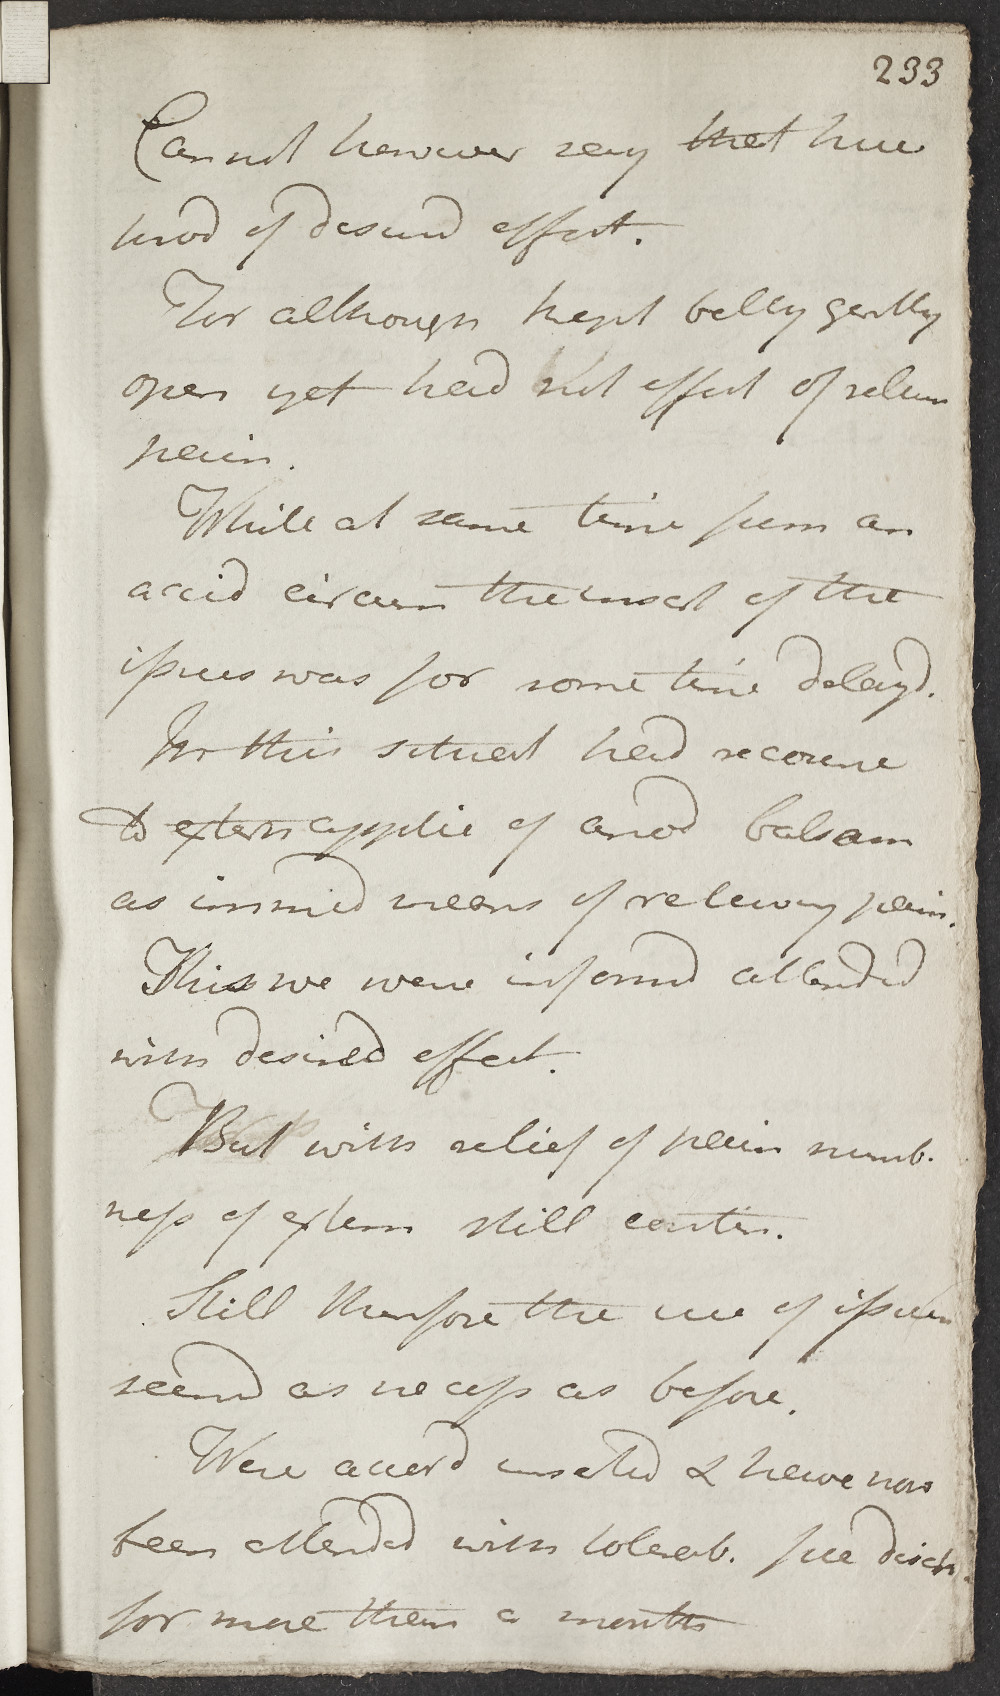 233
Cannot however say that hue
prod of desired effect.
For although kept belly gently
open yet had not effect of reliev
pain.
While at same time from an
accid circum the insert of the
issues was for some time delayd.
In this situat had recourse
to extern applic of anod balsam
as immed means of relieving pain.
This we were informd attended
with desired effect.
But with relief of pain numb-
ness of extrem still contin.
Still therefore the use of issues
seemd as necess as before.
Were accord inserted & have now
been attended with tolerab. free disch.
for more than a month